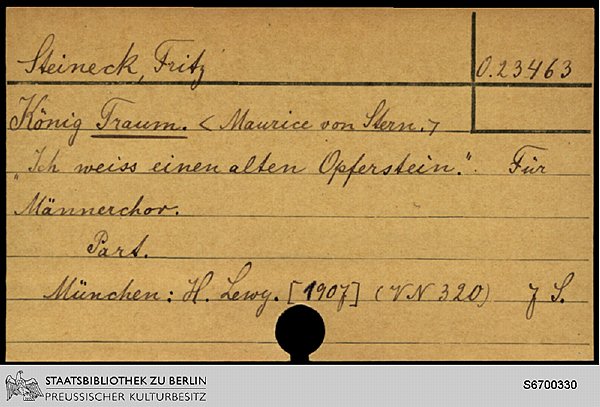 Steineck, Fritz
O.23463
König Traum. < Maurice von Stern. >
"Ich weiss einen alten Opferstein." Für
Männerchor.
Part.
München: H. Lewy. [1907] (VN 320) 7 S.
STAATSBIBLIOTHEK ZU BERLIN
PREUSSISCHER KULTURBESITZ
S6700330